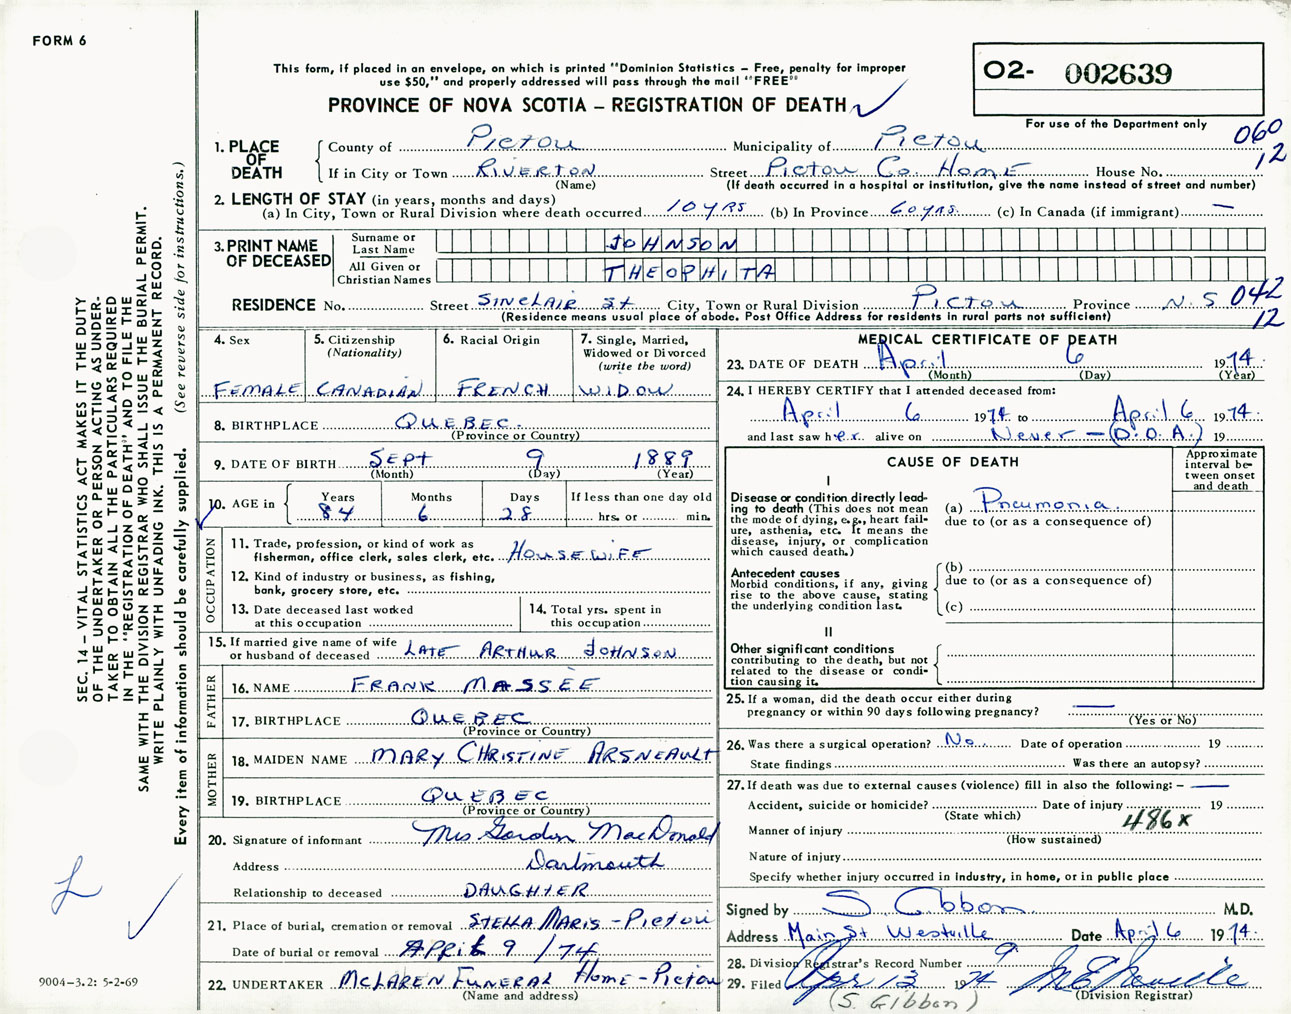 FORM 6
This form, if placed in an envelope, on which is printed "Dominion Statistics – Free, penalty for improper
use $50," and properly addressed will pass through the mail "FREE"
PROVINCE OF NOVA SCOTIA – REGISTRATION OF DEATH
O2- 002639
For use of the Department only
060
12
1. PLACE OF DEATH
County of Pictou Municipality of Pictou
If in City or Town Riverton Street Pictou Co. Home House No.
(Name) (If death occurred in a hospital or institution, give the name instead of street and number)
2. LENGTH OF STAY (in years, months and days)
(a) In City, Town or Rural Division where death occurred 10 yrs (b) In Province 60 yrs. (c) In Canada (if immigrant) —
3. PRINT NAME OF DECEASED
Surname or Last Name JOHNSON
All Given or Christian Names THEOPHITA
RESIDENCE No. Street Sinclair St City, Town or Rural Division Pictou Province N.S
(Residence means usual place of abode. Post Office Address for residents in rural parts not sufficient)
042
12
4. Sex
FEMALE
5. Citizenship
(Nationality)
CANADIAN
6. Racial Origin
FRENCH
7. Single, Married,
Widowed or Divorced
(write the word)
WIDOW
8. BIRTHPLACE QUEBEC.
(Province or Country)
9. DATE OF BIRTH SEPT 9 1889
(Month) (Day) (Year)
10. AGE in Years Months Days If less than one day old
84 6 28 hrs. or min.
OCCUPATION
11. Trade, profession, or kind of work as
fisherman, office clerk, sales clerk, etc. HOUSEWIFE
12. Kind of industry or business, as fishing,
bank, grocery store, etc.
13. Date deceased last worked
at this occupation
14. Total yrs. spent in
this occupation
15. If married give name of wife
or husband of deceased LATE ARTHUR JOHNSON
FATHER
16. NAME FRANK MASSEE
17. BIRTHPLACE QUEBEC
(Province or Country)
MOTHER
18. MAIDEN NAME MARY CHRISTINE ARSNEAULT
19. BIRTHPLACE QUEBEC
(Province or Country)
20. Signature of informant Mrs Gordon MacDonald
Address Dartmouth
Relationship to deceased DAUGHTER
21. Place of burial, cremation or removal STELLA MARIS - Pictou
Date of burial or removal APRIL 9 /74
22. UNDERTAKER McLAREN FUNERAL Home - Pictou
(Name and address)
MEDICAL CERTIFICATE OF DEATH
23. DATE OF DEATH April 6 1974.
(Month) (Day) (Year)
24. I HEREBY CERTIFY that I attended deceased from:
April 6 1974 to April 6 1974.
and last saw her alive on Never — (D.O.A.) 19
CAUSE OF DEATH
Approximate
interval be-
tween onset
and death
I
Disease or condition directly lead-
ing to death (This does not mean
the mode of dying, e.g., heart fail-
ure, asthenia, etc. It means the
disease, injury, or complication
which caused death.)
(a) Pneumonia.
due to (or as a consequence of)
Antecedent causes
Morbid conditions, if any, giving
rise to the above cause, stating
the underlying condition last.
(b)
due to (or as a consequence of)
(c)
II
Other significant conditions
contributing to the death, but not
related to the disease or condi-
tion causing it.
25. If a woman, did the death occur either during
pregnancy or within 90 days following pregnancy? —
(Yes or No)
26. Was there a surgical operation? No Date of operation 19
State findings Was there an autopsy?
27. If death was due to external causes (violence) fill in also the following: – —
Accident, suicide or homicide? Date of injury 19
(State which)
486x
Manner of injury
(How sustained)
Nature of injury
Specify whether injury occurred in industry, in home, or in public place
Signed by S. Gibbon M.D.
Address Main St Westville Date April 6 1974.
28. Division Registrar's Record Number 9
29. Filed Apr 13 1974
(Division Registrar)
(S. Gibbon)
SEC. 14 – VITAL STATISTICS ACT MAKES IT THE DUTY
OF THE UNDERTAKER OR PERSON ACTING AS UNDER-
TAKER TO OBTAIN ALL THE PARTICULARS REQUIRED
IN THE "REGISTRATION OF DEATH" AND TO FILE THE
SAME WITH THE DIVISION REGISTRAR WHO SHALL ISSUE THE BURIAL PERMIT.
WRITE PLAINLY WITH UNFADING INK. THIS IS A PERMANENT RECORD.
Every item of information should be carefully supplied. (See reverse side for instructions.)
9004-3.2: 5-2-69